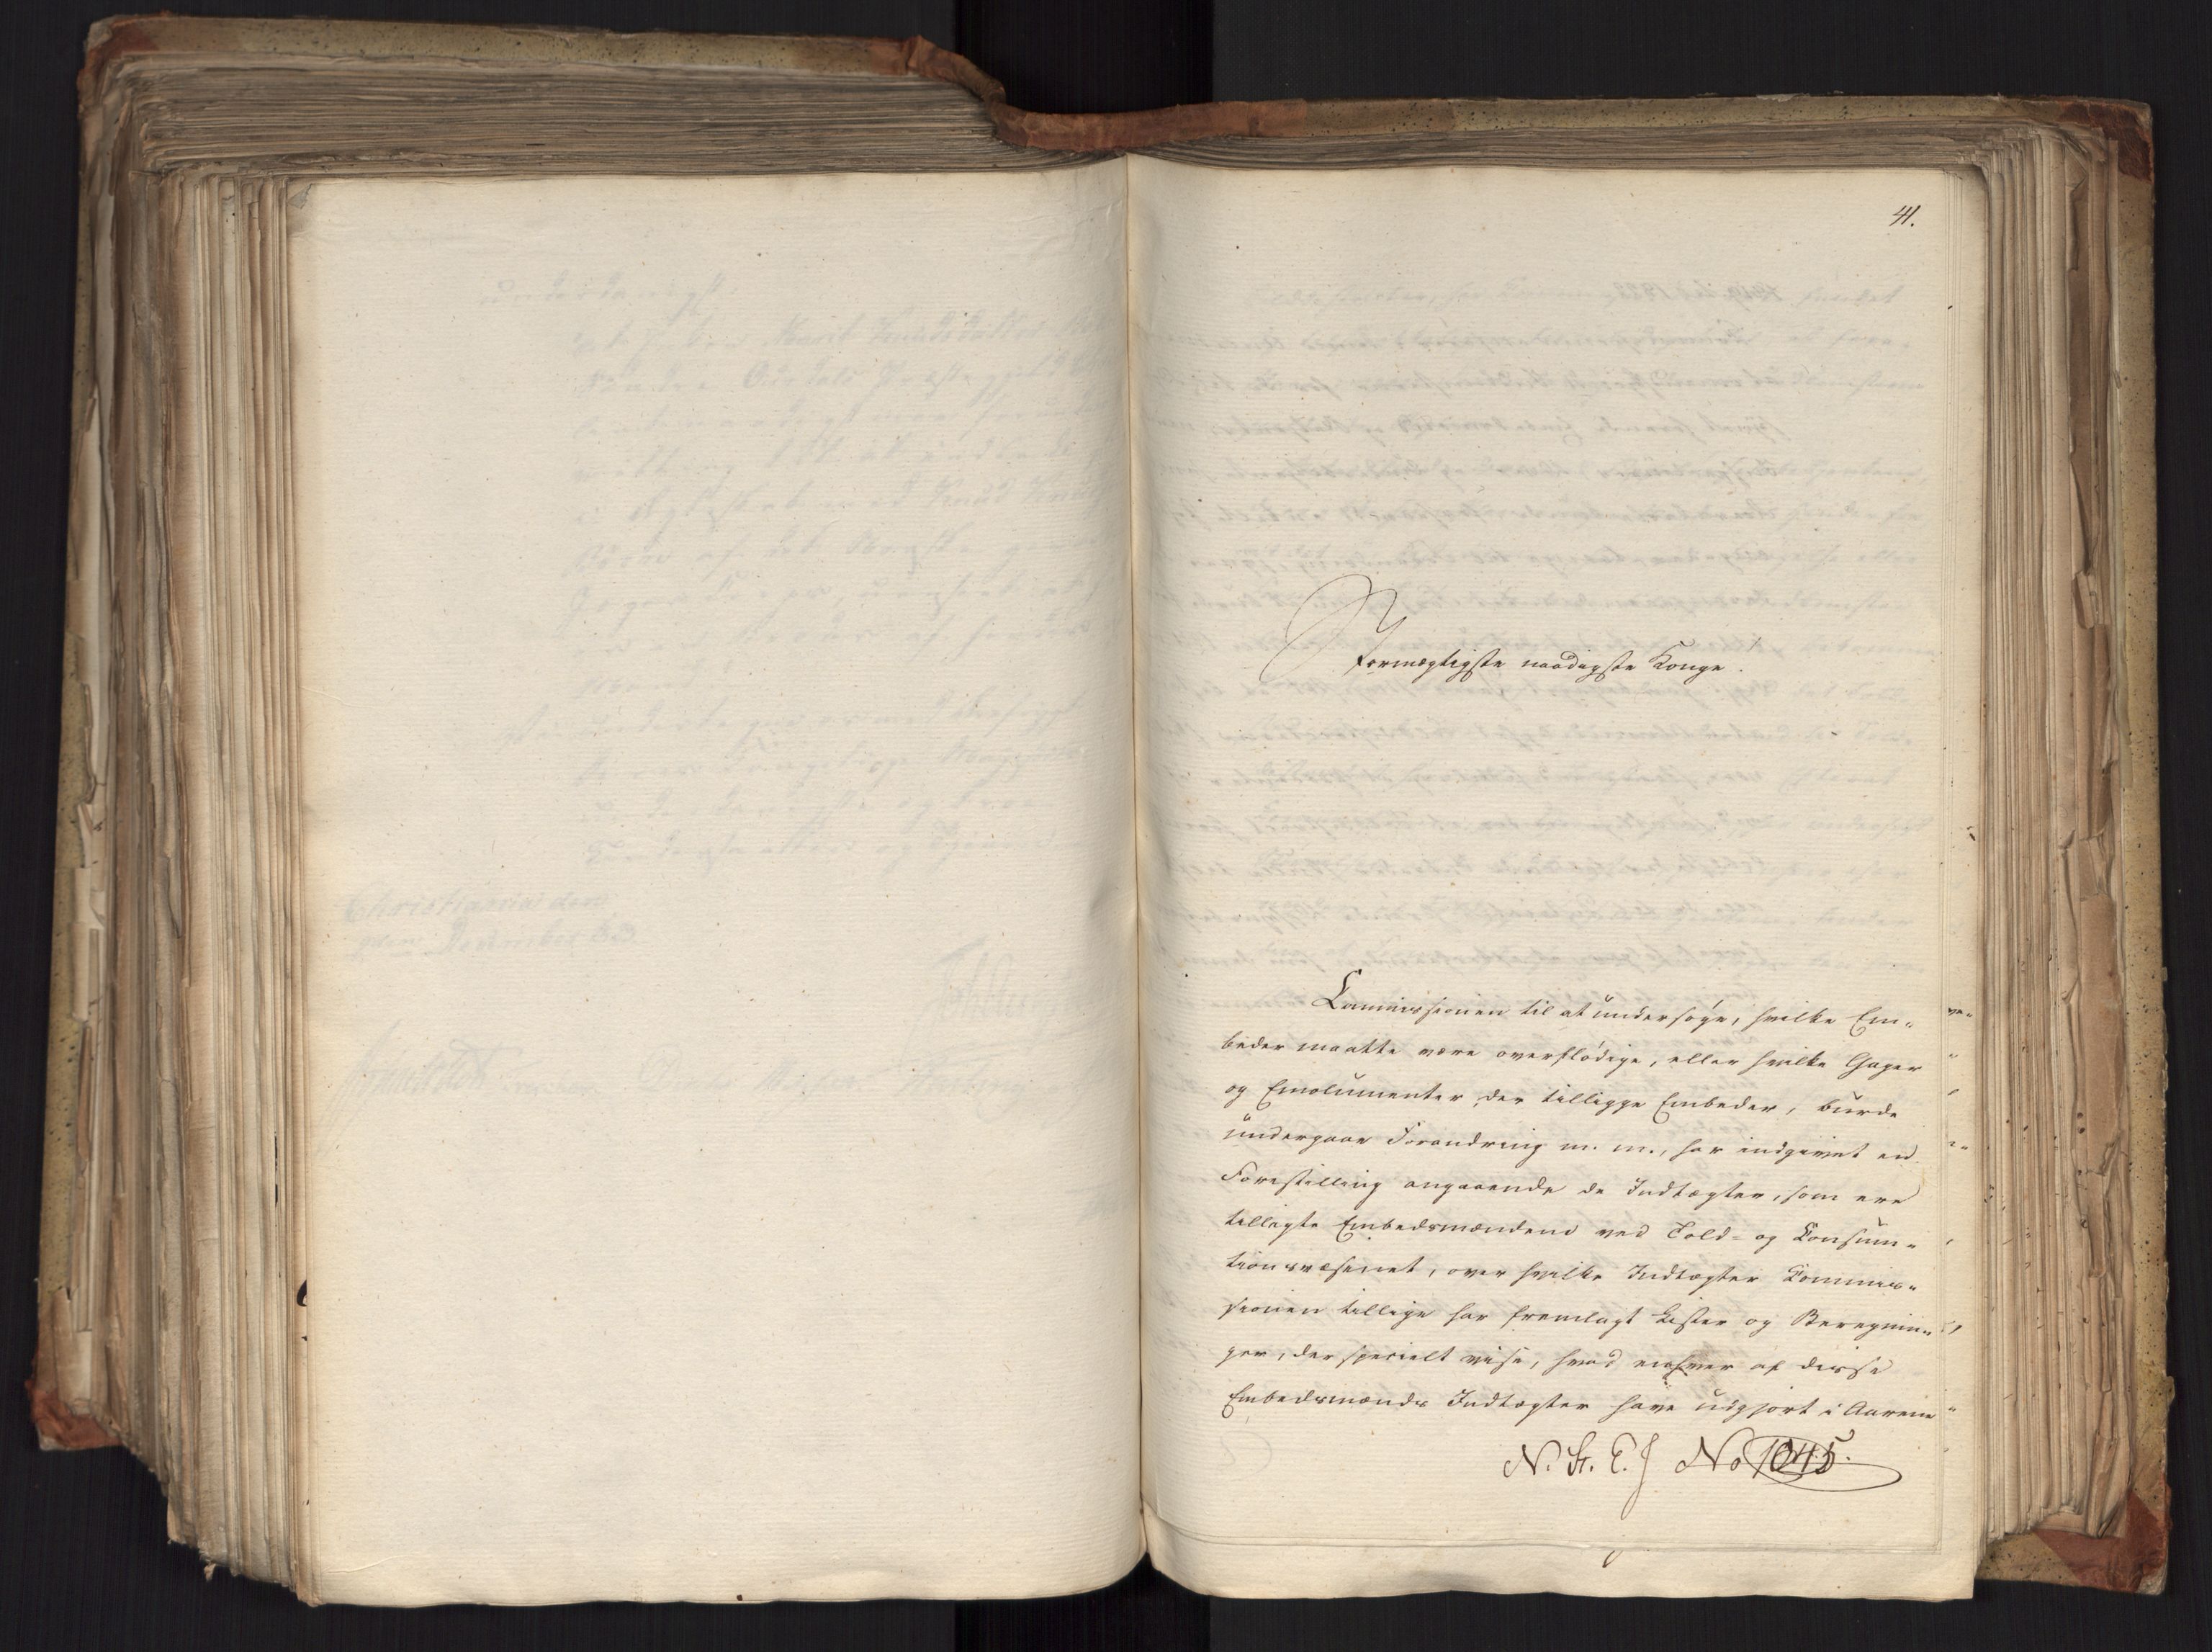 41.
Stormægtigste naadigste Konge.
Commissionen til at undersøge, hvilke Em-
beder maatte være overflödige, eller hvilke Gager
og Emolumenter der tilligge Embeder, burde
undergaae Forandring m. m., har indgivet en
Forestilling angaaende de Indtægter, som ere
tillagte Embedsmændene ved Told- og Consum-
tionsvæsenet, over hvilke Indtægter Commis-
sionen tillige har fremlagt Lister og Beregnin-
ger, der specielt vise, hvad enhver af disse
Embedsmænds Indtægter have udgjort i Aarene
N. St. E. J No 1045.